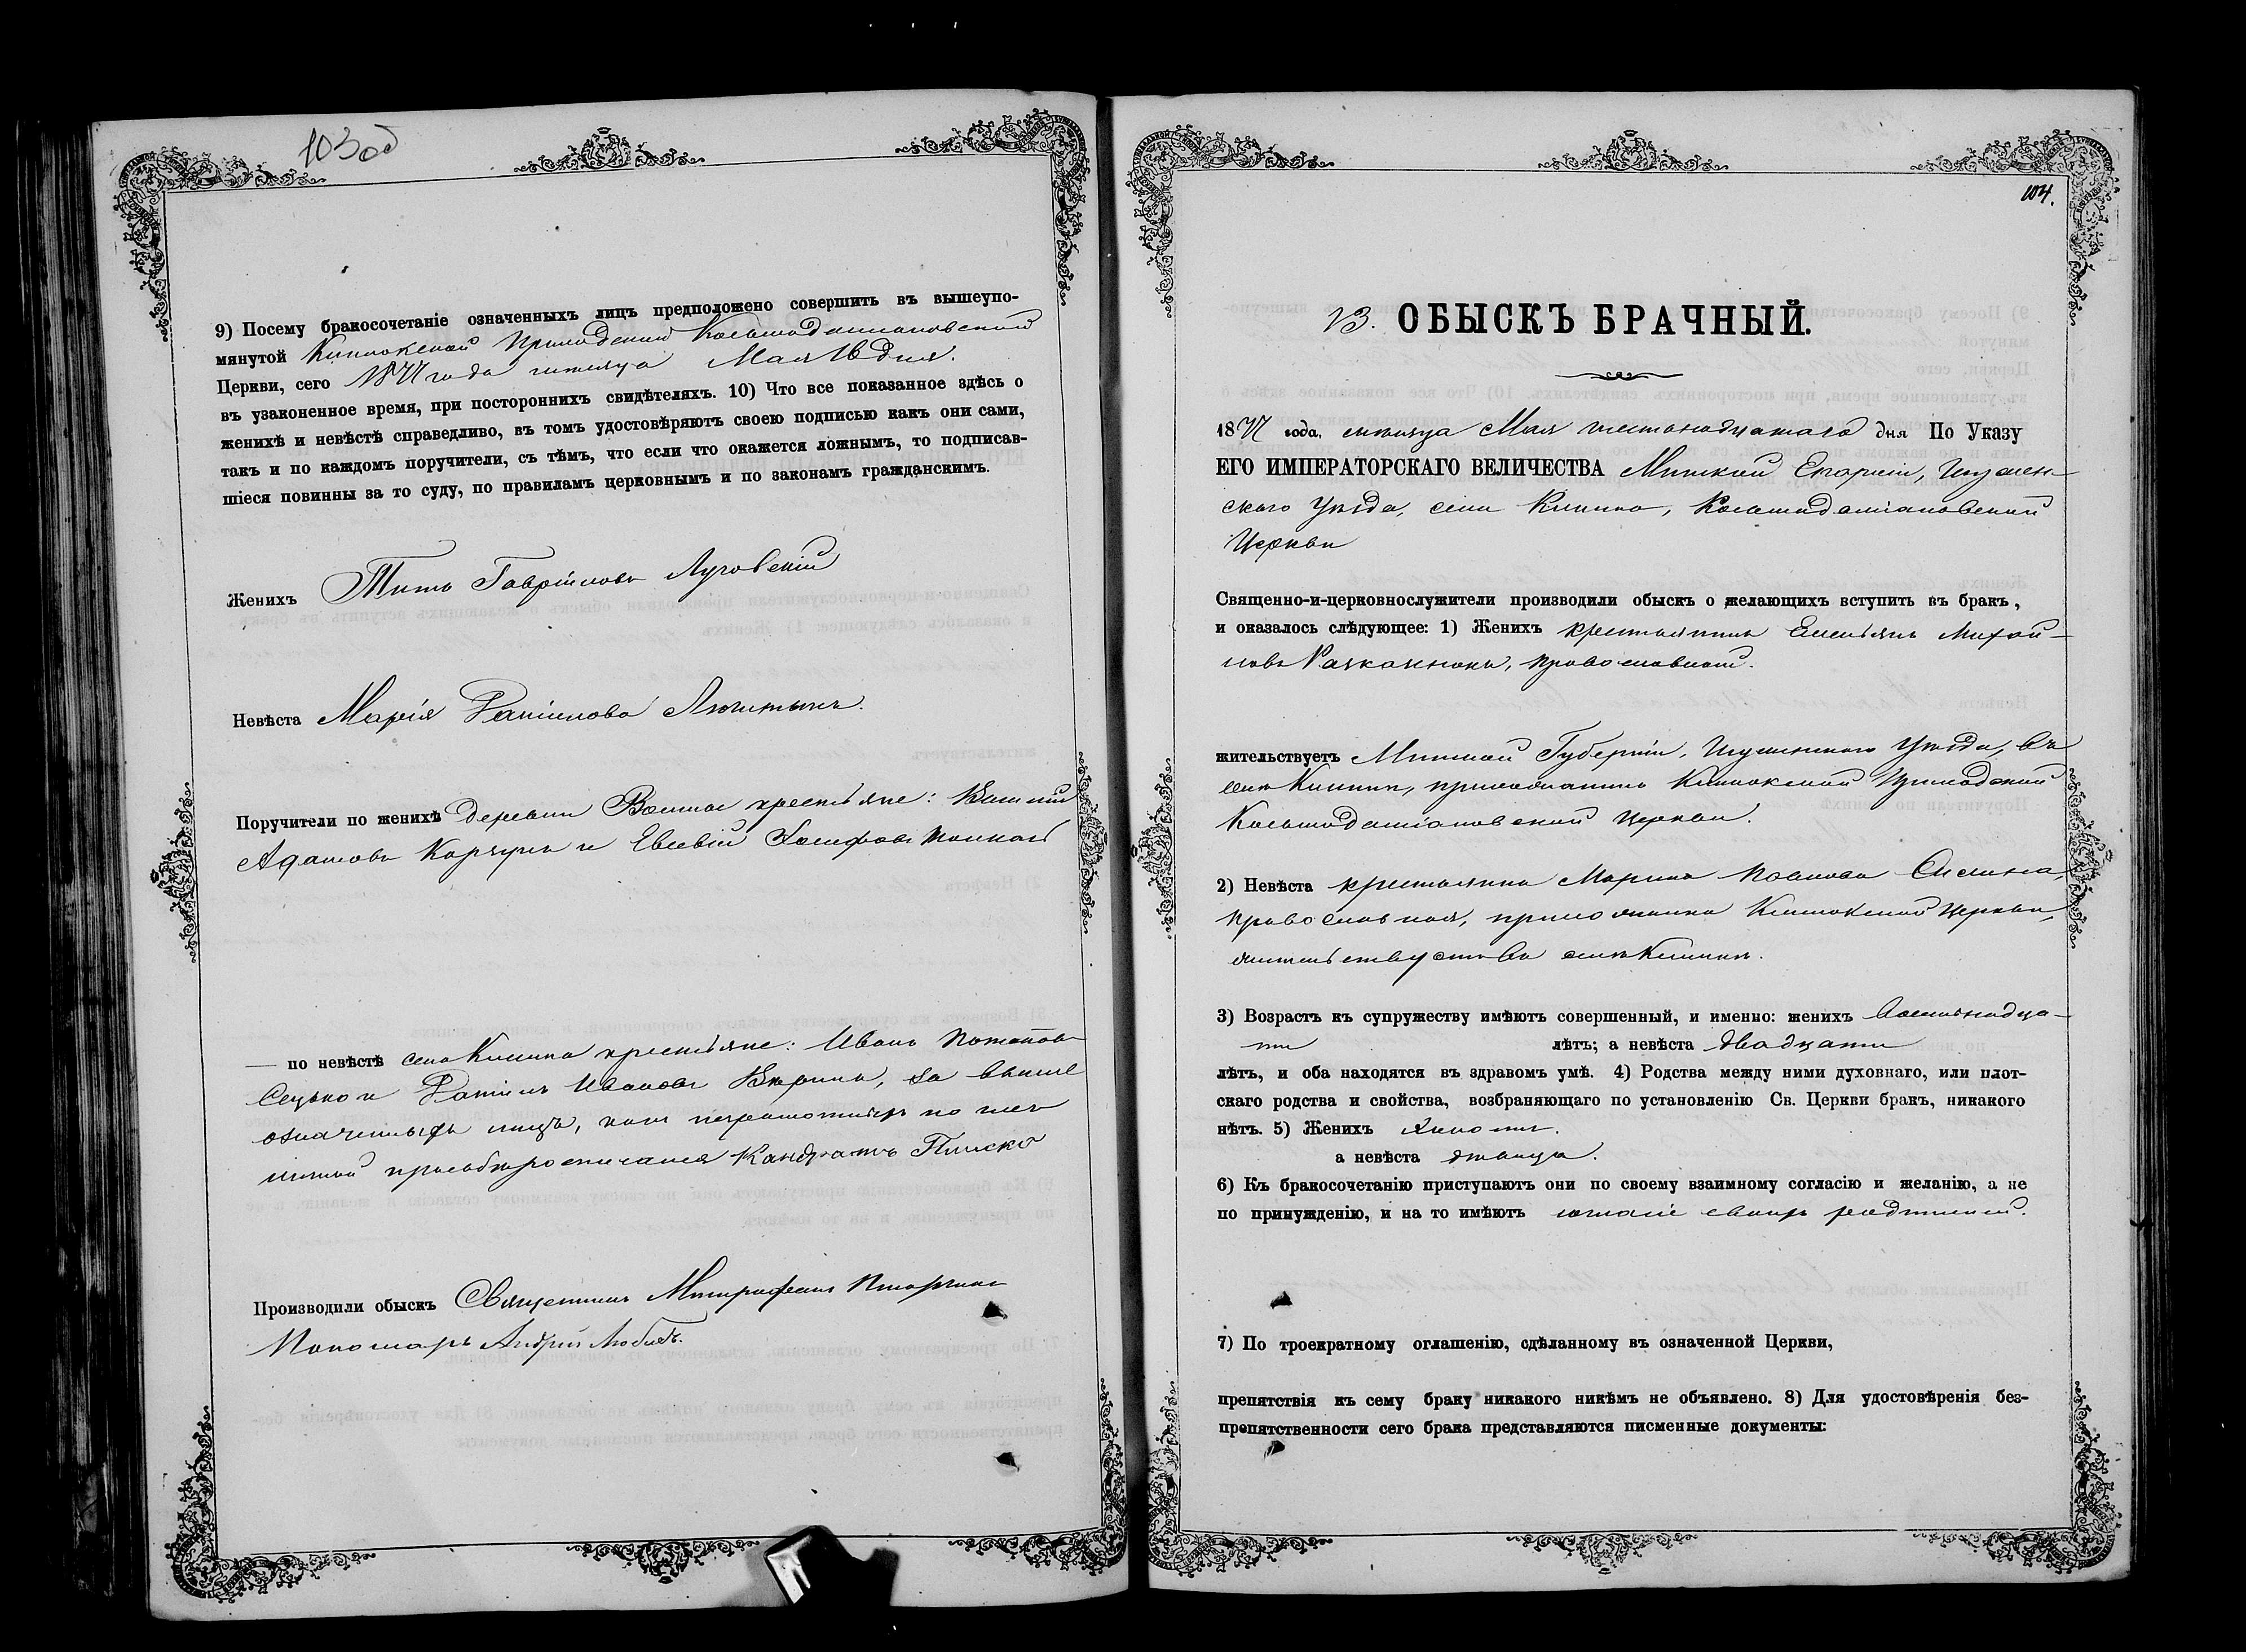 103 об
9) Посему бракосочетаніе означенныхъ лицъ предположено совершить въ вышеупо-
мянутой Клинокской Приходской Косьмодаміановской
Церкви, сего 1877 года месяца Мая 16 дня.
въ узаконенное время, при постороннихъ свидѣтеляхъ. 10) Что все показанное здѣсь о
женихѣ и невѣстѣ справедливо, въ томъ удостовѣряютъ своею подписью какъ они сами,
такъ и по каждомъ поручители, съ тѣмъ, что если что окажется ложнымъ, то подписав-
шіеся повинны за то суду, по правиламъ церковнымъ и по законамъ гражданскимъ.
Женихъ Титъ Гавріиловъ Луговскій
Невѣста Марія Даніилова
Поручители по женихѣ деревни крестьяне:
Адамовъ Коржунъ и Евсевій Іосифовъ
— по невѣстѣ села Клинка крестьяне: Иванъ Потаповъ
Сецько и Даніилъ Ивановъ за выше
означенныхъ лицъ, какъ неграмотныхъ по
личной просьбѣ росписался Кандратъ
Производили обыскъ Священникъ Митрофанъ
Пономарь Андрей
104.
13. ОБЫСКЪ БРАЧНЫЙ.
1877 года, месяца Мая шестнадцатаго дня По Указу
ЕГО ИМПЕРАТОРСКАГО ВЕЛИЧЕСТВА Минской Епархіи, Игумен-
скаго Уѣзда, села Клинка, Косьмодаміановской
Церкви
Священно-и-церковнослужители производили обыскъ о желающихъ вступить въ бракъ,
и оказалось слѣдующее: 1) Женихъ крестьянинъ Емельянъ Михай-
ловъ православный.
жительствуетъ Минской Губерніи, Игуменскаго Уѣзда, въ
селѣ Клинкѣ, прихожанинъ Клинокской Приходской
Косьмодаміановской Церкви.
2) Невѣста крестьянка Марина Павлова
православная, прихожанка Клинокской Церкви,
жительствуетъ въ селѣ Клинкѣ.
3) Возрастъ къ супружеству имѣютъ совершенный, и именно: женихъ восемнадца-
ти лѣтъ; а невѣста двадцати
лѣтъ, и оба находятся въ здравомъ умѣ. 4) Родства между ними духовнаго, или плот-
скаго родства и свойства, возбраняющаго по установленію Св. Церкви бракъ, никакого
нѣтъ. 5) Женихъ холостъ.
а невѣста дѣвица.
6) Къ бракосочетанію приступаютъ они по своему взаимному согласію и желанію, а не
по принужденію, и на то имѣютъ согласіе своихъ родителей.
7) По троекратному оглашенію, сдѣланному въ означенной Церкви,
препятствія къ сему браку никакого никѣмъ не объявлено. 8) Для удостовѣренія без-
препятственности сего брака представляются писменные документы: